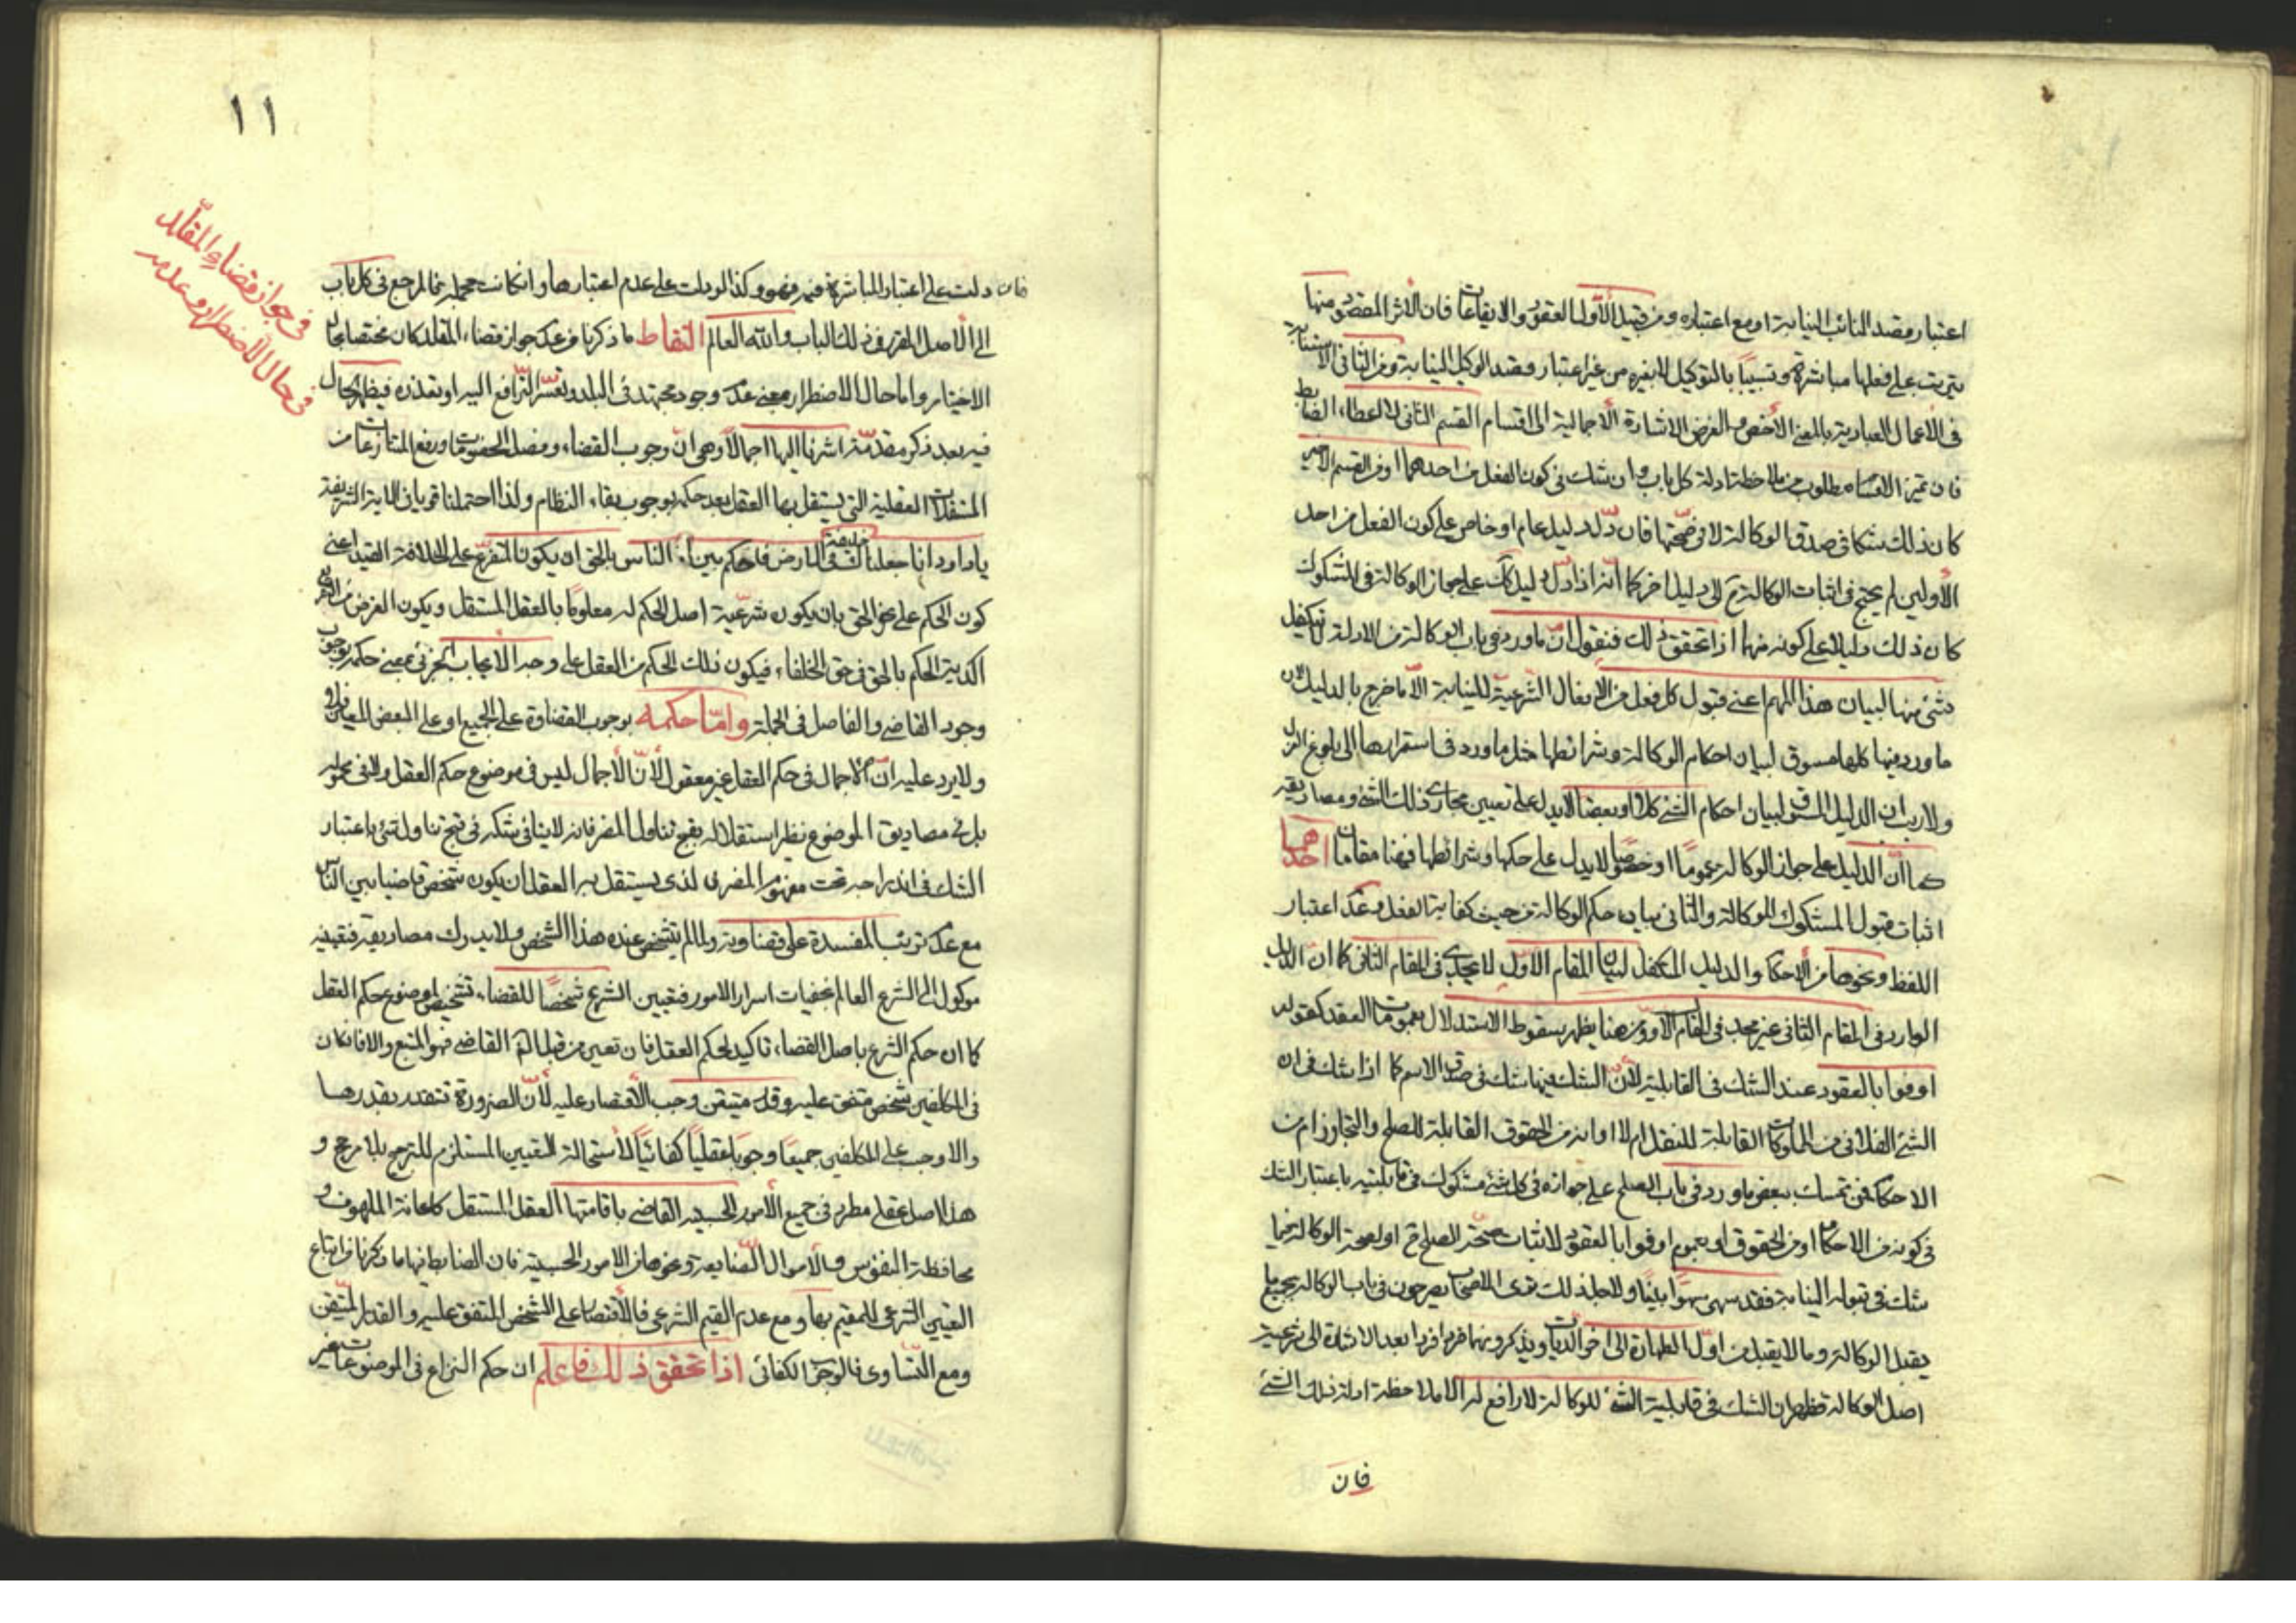 اعتبار قصد النائب النيابة او مع اعتباره ومن قبيل الأول العقود والايقاعات فان الأثر المقصود منها
يترتب على فعلها مباشرة وتسبيبا بالتوكيل لا بغيره من غير اعتبار قصد الوكيل النيابة ومن الثاني الاستنابة
في الأعمال العبادية بالمعنى الأخص والغرض الاشارة الأجمالية الى اقسام القسم الثاني لا اعطاء الضابط
فان تميز الاقسام مطلوب من ملاحظة ادلة كل باب وان شك في كون الفعل من احدهما او من القسم الأخير
كان ذلك شكا في صدق الوكالة لا في صحتها فان دل دليل عام او خاص على كون الفعل من احد
الأولين لم يحتج في اثبات الوكالة الى دليل اخر كما انه اذا دل دليل كك على جواز الوكالة في المشكوك
كان ذلك دليلا على كونه منهما اذا تحقق ذلك فنقول ان ما ورد في باب الوكالة من الادلة لا يتكفل
شئ منها لبيان هذا المهم اعني قبول كل فعل من الافعال الشرعية للنيابة الا ما خرج بالدليل لان
ما ورد فيها كلها مسوق لبيان احكام الوكالة وشرائطها مثل ما ورد في استمرارها الى بلوغ العزل
ولا ريب ان الدليل المسوق لبيان احكام الشئ كلا او بعضا لا يدل على تعيين مجاري ذلك الشئ ومصاديقه
كما ان الدليل على جواز الوكالة عموما او خصوصا لا يدل على حكمها وشرائطها فهنا مقامان احدهما
اثبات قبول المشكوك للوكالة والثاني بيان حكم الوكالة من حيث كفاية الفعل وعدم اعتبار
اللفظ ونحوها من الاحكام والدليل المتكفل لبيان المقام الأول لا يجدي في المقام الثاني كما ان الدليل
الوارد في المقام الثاني غير مجد في المقام الأول ومن هنا يظهر سقوط الاستدلال بعمومات العقد كقوله
اوفوا بالعقود عند الشك في القابلية لأن الشك فيها شك في صدق الاسم كما اذا شك في ان
الشئ الفلاني من الملوكات القابلة للنقل ام لا او انه من الحقوق القابلة للصلح والتجاوز ام من
الاحكام فمن تمسك ببعض ما ورد في باب الصلح على جوازه في كل شئ مشكوك في قابليته باعتبار الشك
في كونه من الاحكام او من الحقوق او بعموم اوفوا بالعقود لاثبات صحة الصلح او لصحة الوكالة فيما
شك في قبوله النيابة فقد سهى سهوا بينا ولاجل ذلك ترى الاصحاب يصرحون في باب الوكالة بجميع ما
يقبل الوكالة وما لا يقبل من اول الطهارة الى اخر الديات ويذكرونها فردا فردا بعد الاشارة الى شرعية
اصل الوكالة فظهر ان الشك في قابلية الشئ للوكالة لا رافع له الا ملاحظة ادلة ذلك الشئ
فان
١١
في جواز قضاء المقلد
في حال الأضطرار وعدمه
فان دلت على اعتبار المباشرة فيه فهو وكذا لو دلت على عدم اعتبارها وان كانت مجملة فالمرجع في كل باب
الى الأصل المقرر في ذلك الباب والله العالم التقاط ما ذكرنا من عدم جواز قضاء المقلد كان مختصا بحال
الاختيار واما حال الاضطرار بمعنى عدم وجود مجتهد في البلد وتعسر الترافع اليه او تعذره فيظهر الحال
فيه بعد ذكر مقدمة اشرنا اليها اجمالا وهي ان وجوب القضاء وفصل الخصومات ورفع المنازعات من
المستقلات العقلية التي يستقل بها العقل بعد حكمه بوجوب بقاء النظام ولذا احتملنا قويا في الاية الشريفة
يا داود انا جعلناك خليفة في الارض فاحكم بين الناس بالحق ان يكون المتفرع على الخلافة القيد اعني
كون الحكم على نحو الحق بان يكون شرعية اصل الحكم له معلوما بالعقل المستقل ويكون الغرض من التفريع
اكدية الحكم بالحق في حق الخلفاء فيكون ذلك الحكم من العقل على وجه الأيجاب الجزئي بمعنى حكمه بوجوب
وجود القاضي والفاصل في الجملة واما حكمه بوجوب القضاوة على الجميع او على البعض المعين فلا
ولا يرد عليه ان الاجمال في حكم العقل غير معقول لأن الأجمال ليس في موضوع حكم العقل ولا في محموله
بل في مصاديق الموضوع نظير استقلاله بقبح تناول المضر فانه لا ينافي شكه في قبح تناول شئ باعتبار
الشك في اندراجه تحت مفهوم المضر فالذي يستقل به العقل ان يكون شخص قاضيا بين الناس
مع عدم ترتب المفسدة على قضاوته ولما لم يتشخص عنده هذا الشخص ولا يدرك مصاديقه فتعيينه
موكول الى الشرع العالم بخفيات اسرار الامور فتعيين الشرع شخصا للقضاء تشخيص لموضوع حكم العقل
كما ان حكم الشرع باصل القضاء تاكيد لحكم العقل فان تعين من قبل الشرع القاضي فهو المتبع والا فان كان
في المكلفين شخص متفق عليه وقدر متيقن وجب الأقتصار عليه لأن الضرورة تتقدر بقدرها
والا وجب على المكلفين جميعا وجوبا عقليا كفائيا لأستحالة التعيين المستلزم للترجيح بلا مرجح و
هذا اصل عقلي مطرد في جميع الأمور الحسبية القاضي باقامتها العقل المستقل كاعانة الملهوف و
محافظة النفوس والأموال الضايعة ونحوها من الامور الحسبية فان الضابط فيها ما ذكرنا من اتباع
التعيين الشرعي للمقيم بها ومع عدم القيم الشرعي فالأقتصار على الشخص المتفق عليه والقدر المتيقن
ومع التساوي فالوجوب الكفائي اذا تحقق ذلك فاعلم ان حكم النزاع في الموضوعات غير